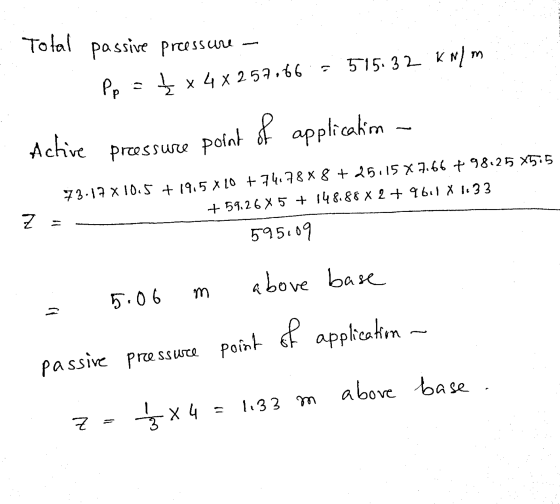 Total passive pressure —
Pp = 1/2 × 4 × 257.66 = 515.32 KN/m
Active pressure point of application —
73.17 × 10.5 + 19.5 × 10 + 74.78 × 8 + 25.15 × 7.66 + 98.25 × 5.5
+ 59.26 × 5 + 148.88 × 2 + 96.1 × 1.33
Z =
595.09
= 5.06 m above base
passive pressure point of application —
Z = 1/3 × 4 = 1.33 m above base.